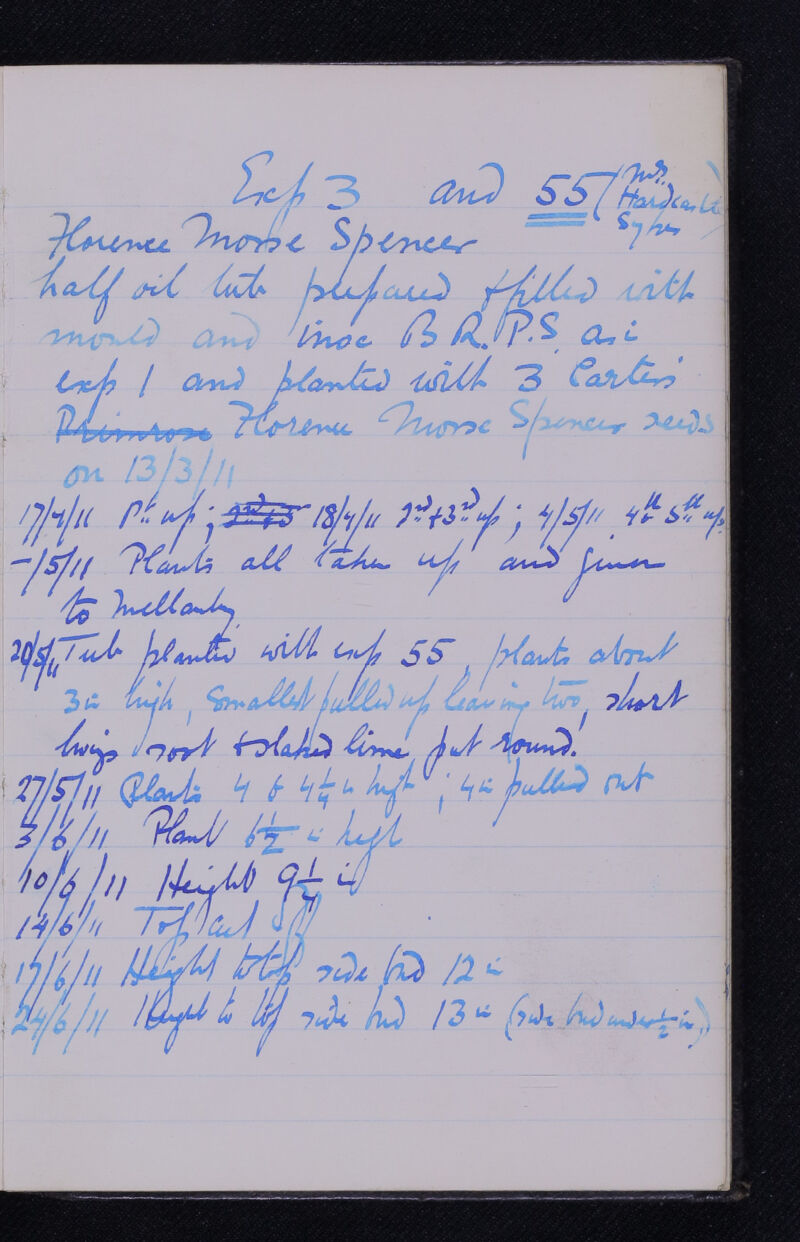 Exp 3 and 55 (Mrs Hardcastle Sykes)
Florence Morse Spencer
half oil tub prepared & filled with
mould and inoc B R. P. S. as in
exp 1 and planted with 3 Carters
Primrose Florence Morse Spencer seeds
on 13/3/11
17/4/11 1st up; 2nd & 3 18/4/11 2nd & 3rd up; 4/5/11 4th 5th up.
-/5/11 Plants all taken up and given
to Mellanby
20/5/11 Tub planted with exp 55, plants about
3 in high, smallest pulled up leaving two, short
twigs soot & slaked lime put round.
27/5/11 Plants 4 & 4 1/4 in high; 4 in pulled out
3/6/11 Plant 6 1/2 in high
10/6/11 Height 9 1/4 in
14/6/11 Top cut off
17/6/11 Height to top side bud 12 in
24/6/11 Height to top side bud 13 in (side bud under 1/2 in)